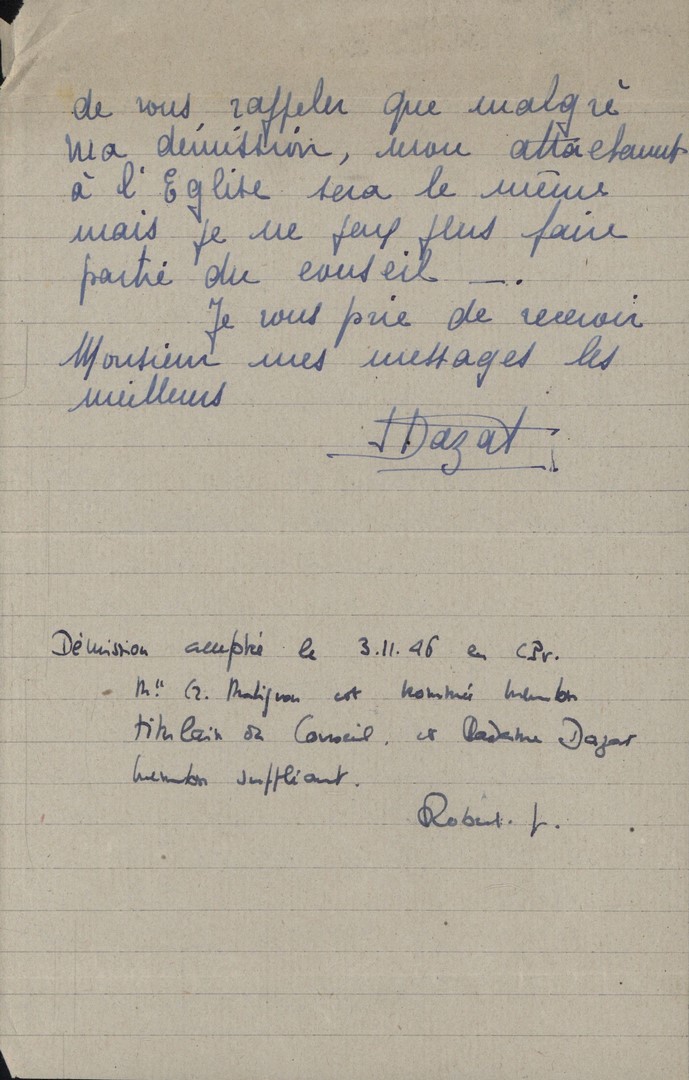 de vous rappeler que malgré
ma démission, mon attachement
à l'Eglise sera le même
mais je ne peux plus faire
partie du conseil —.
Je vous prie de recevoir
Monsieur mes messages les
meilleurs
Dazat
Démission acceptée le 3.11.46 en CPr.
G. Matignon est nommé membre
titulaire du Conseil, et Madame Dazat
membre suppléant.
Robert. f.